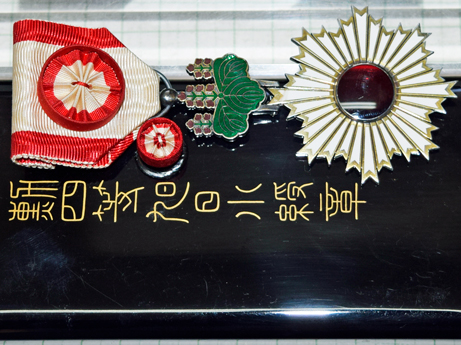 勲四等旭日小綬章